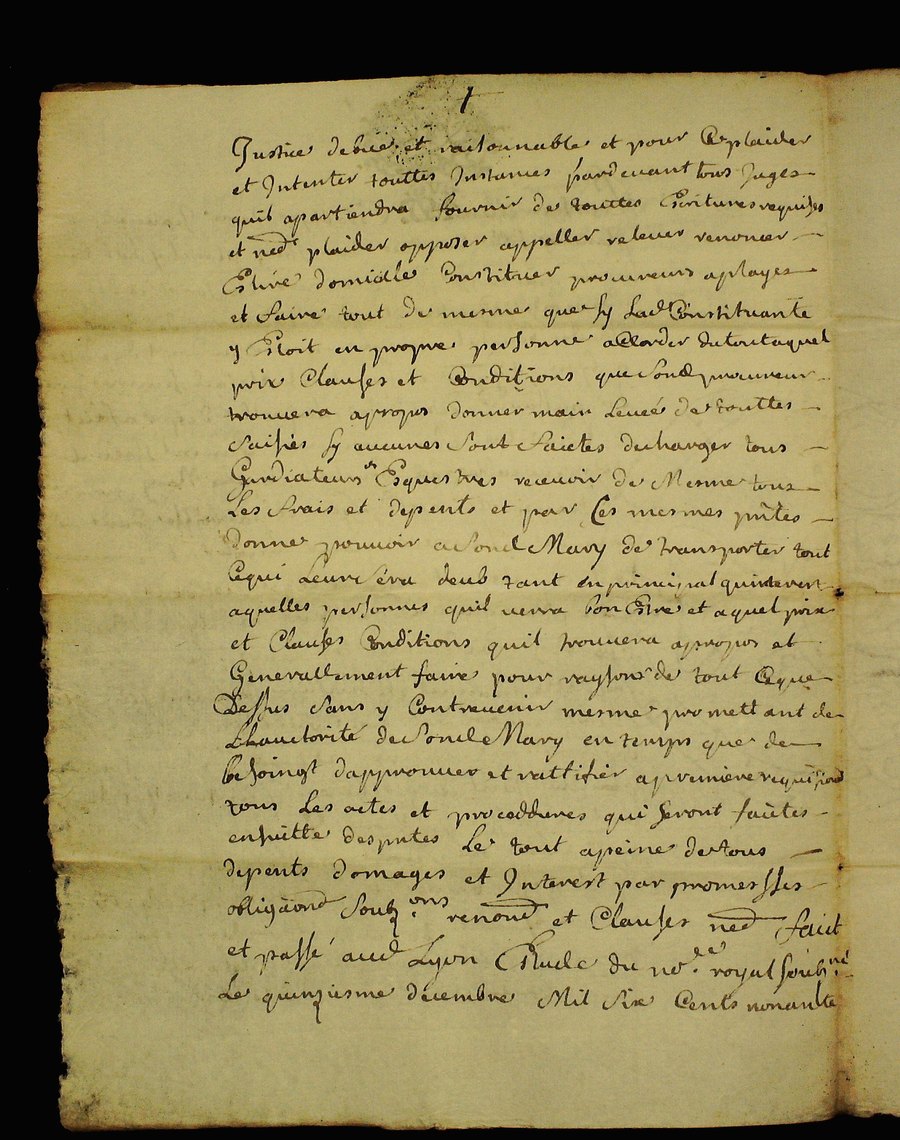 Justice debue et raisonnable et pour Ce plaider
et Intenter touttes Instances pardevant tous Juges
quil apartiendra fournir de touttes Escritures requises
et ned plaider opposer appeller relever renoncer
Eslire domicille Constituer procureurs aplayes
et faire tout de mesme que sy Lad Constituante
y Estoit en propre personne acCorder du tout aquel
prix Clauses et Conditions que sond procureur
trouvera apropos donner main Levée de touttes
saisies sy aucunes sont faictes descharger tous
Gardiateurs et Esquestres recevoir de Mesme tous
Les frais et depents et par Ces mesmes pntes
donne pouvoir a sond Mary de transporter tout
Cequi Leur sera deub tant en principal quinterest
aquelles personnes quil verra bon Estre et aquel prix
et Clauses Conditions quil trouvera apropos et
Generallement faire pour raysons de tout Ceque
Dessus sans y Contrevenir mesme promettant de
Lhauctorité de sond Mary en temps que de
besoingt dapprouver et rattifier a premiere requisition
tous Les actes et proceddures qui seront faictes
ensuitte des pntes Le tout apeine de tous
depents domages et Interest par promesses
obligaond soubz ons renond et Clauses ned faict
et passé aud Lyon Estude du no.re royal soubz.né
Le quinziesme decembre Mil Six Cents nonante